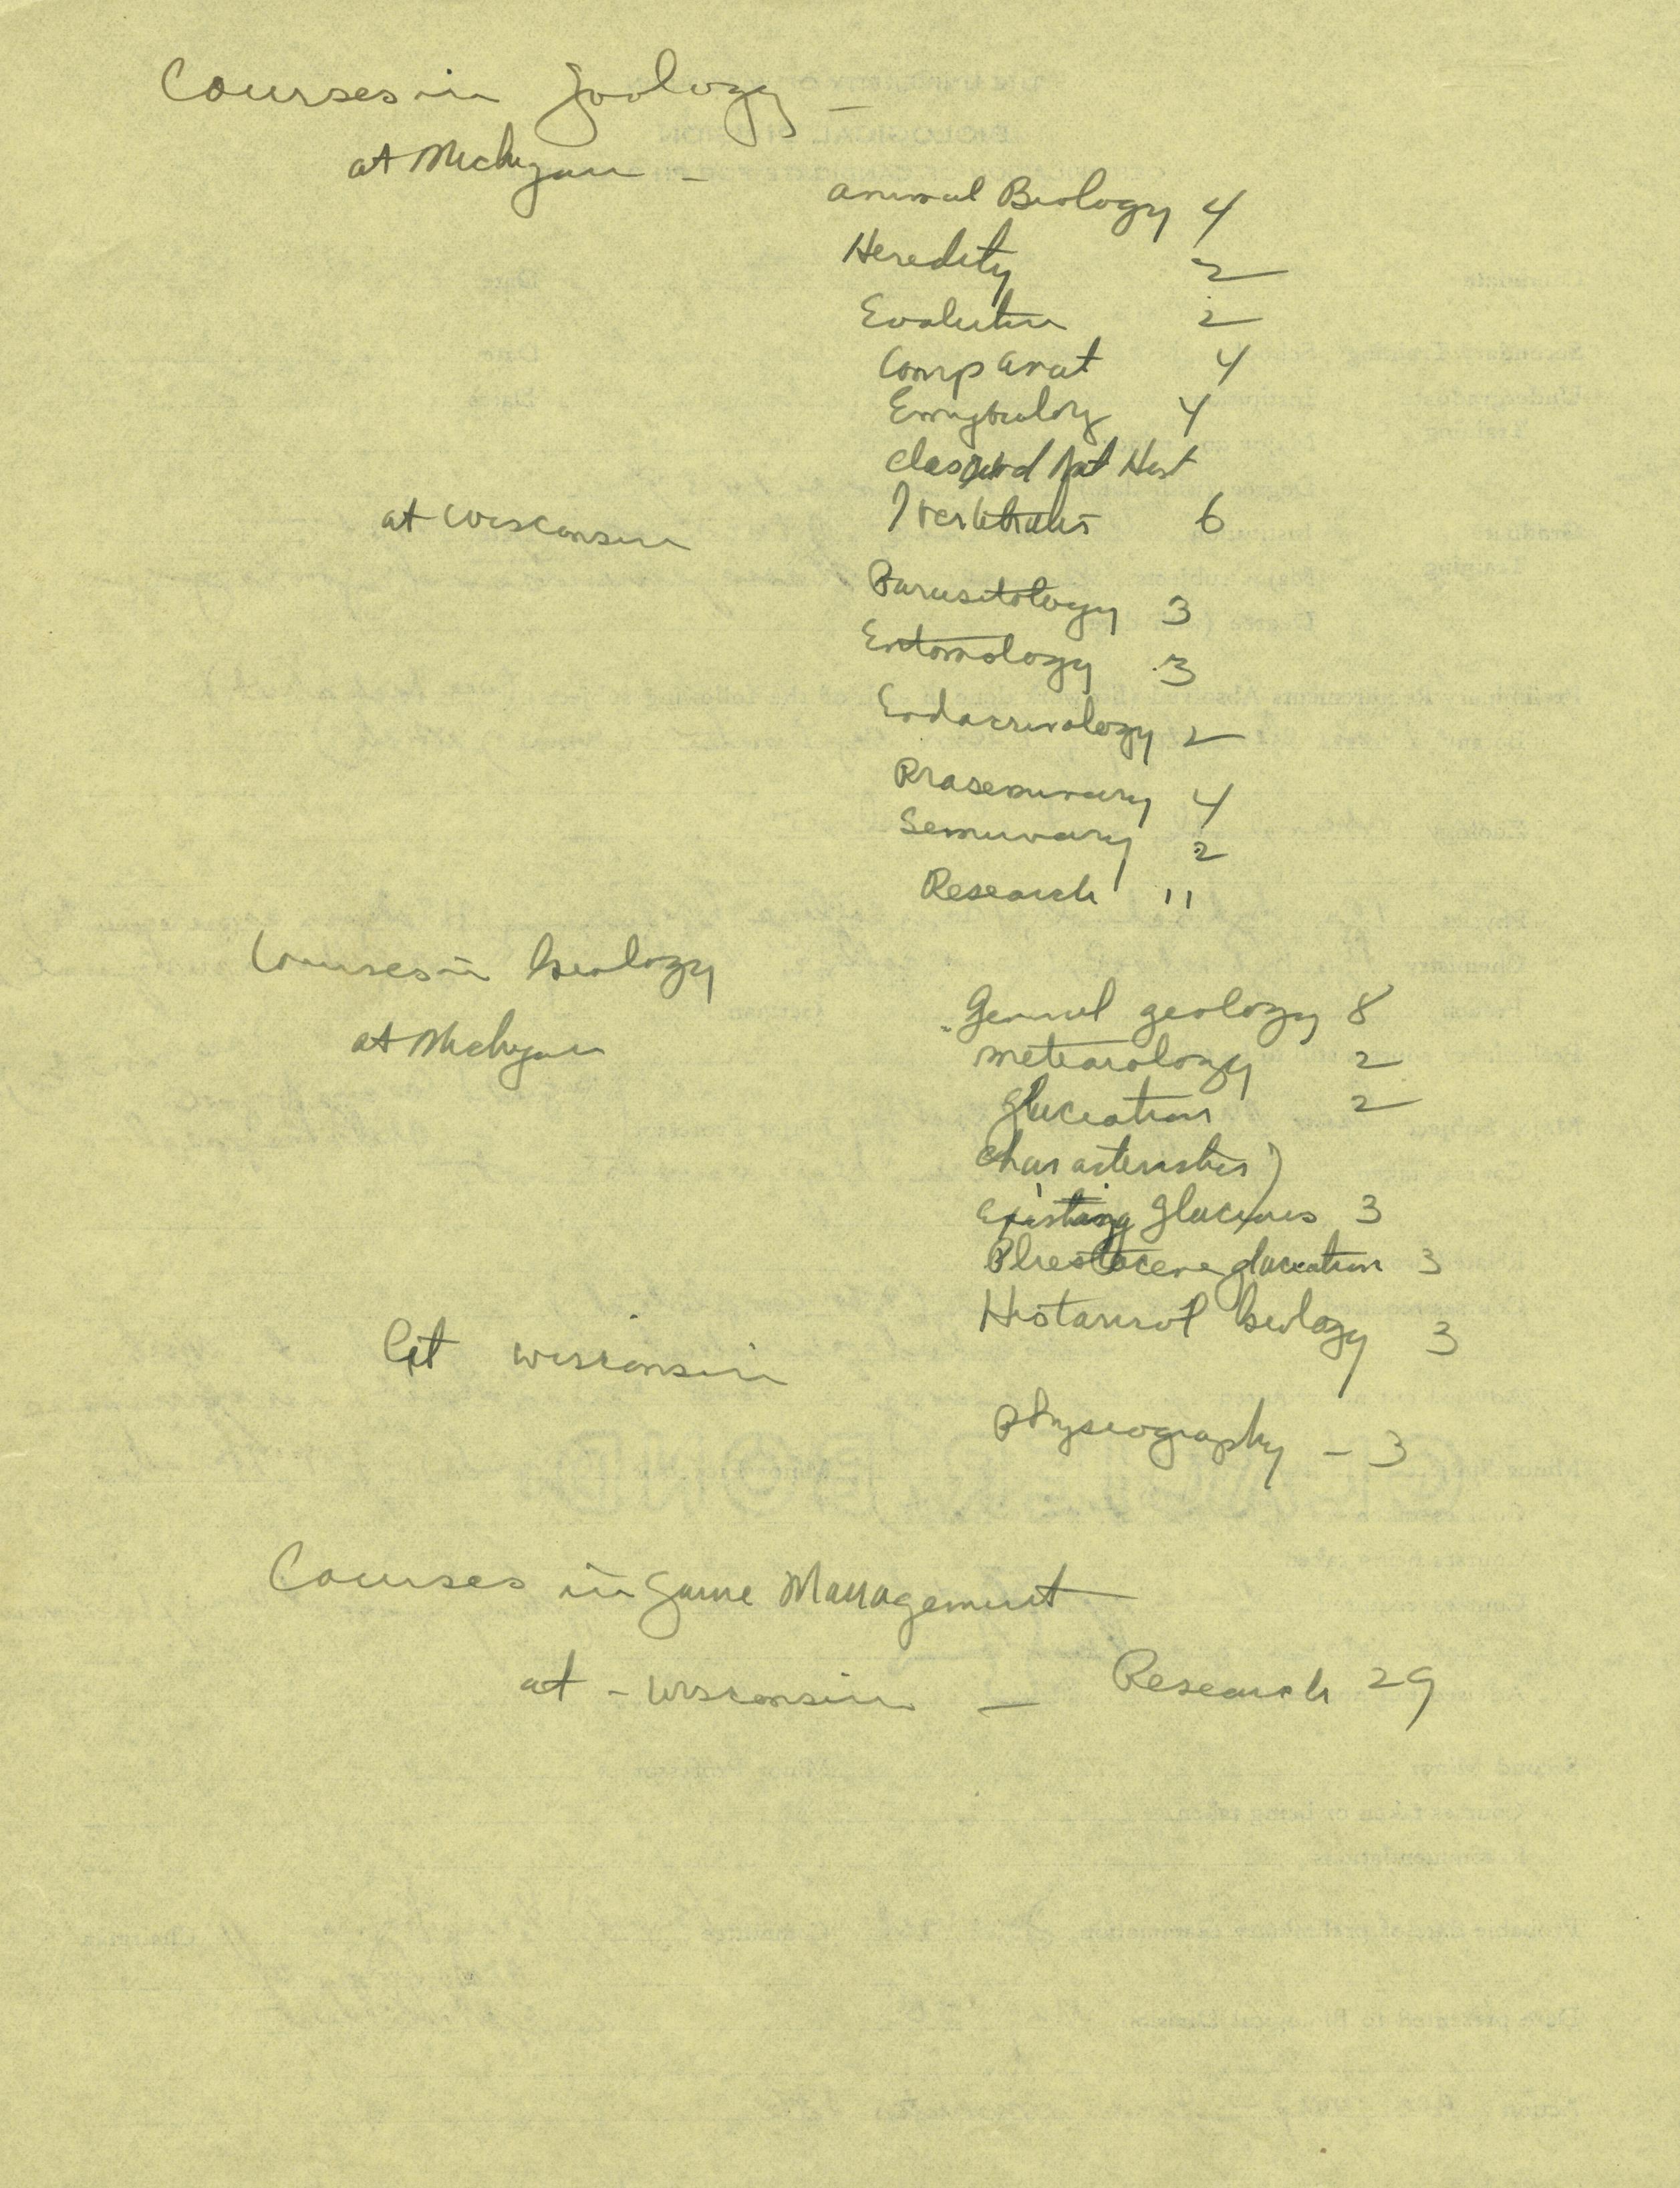 Courses in Zoology -
at Michigan -
Animal Biology 4
Heredity 2
Evolution 2
Comp Anat 4
Embryology 4
Class and Nat Hist
Invertebrates 6
at Wisconsin
Parasitology 3
Entomology 3
Endocrinology 2
Proseminary 4
Seminary 2
Research 11
Courses in Geology
at Michigan
General geology 8
Meteorology 2
Glaciation 2
Characteristics
existing Glaciers 3
Pleistocene glaciation 3
Historical Geology 3
At Wisconsin
Physiography - 3
Courses in Game Management
at - Wisconsin - Research 29